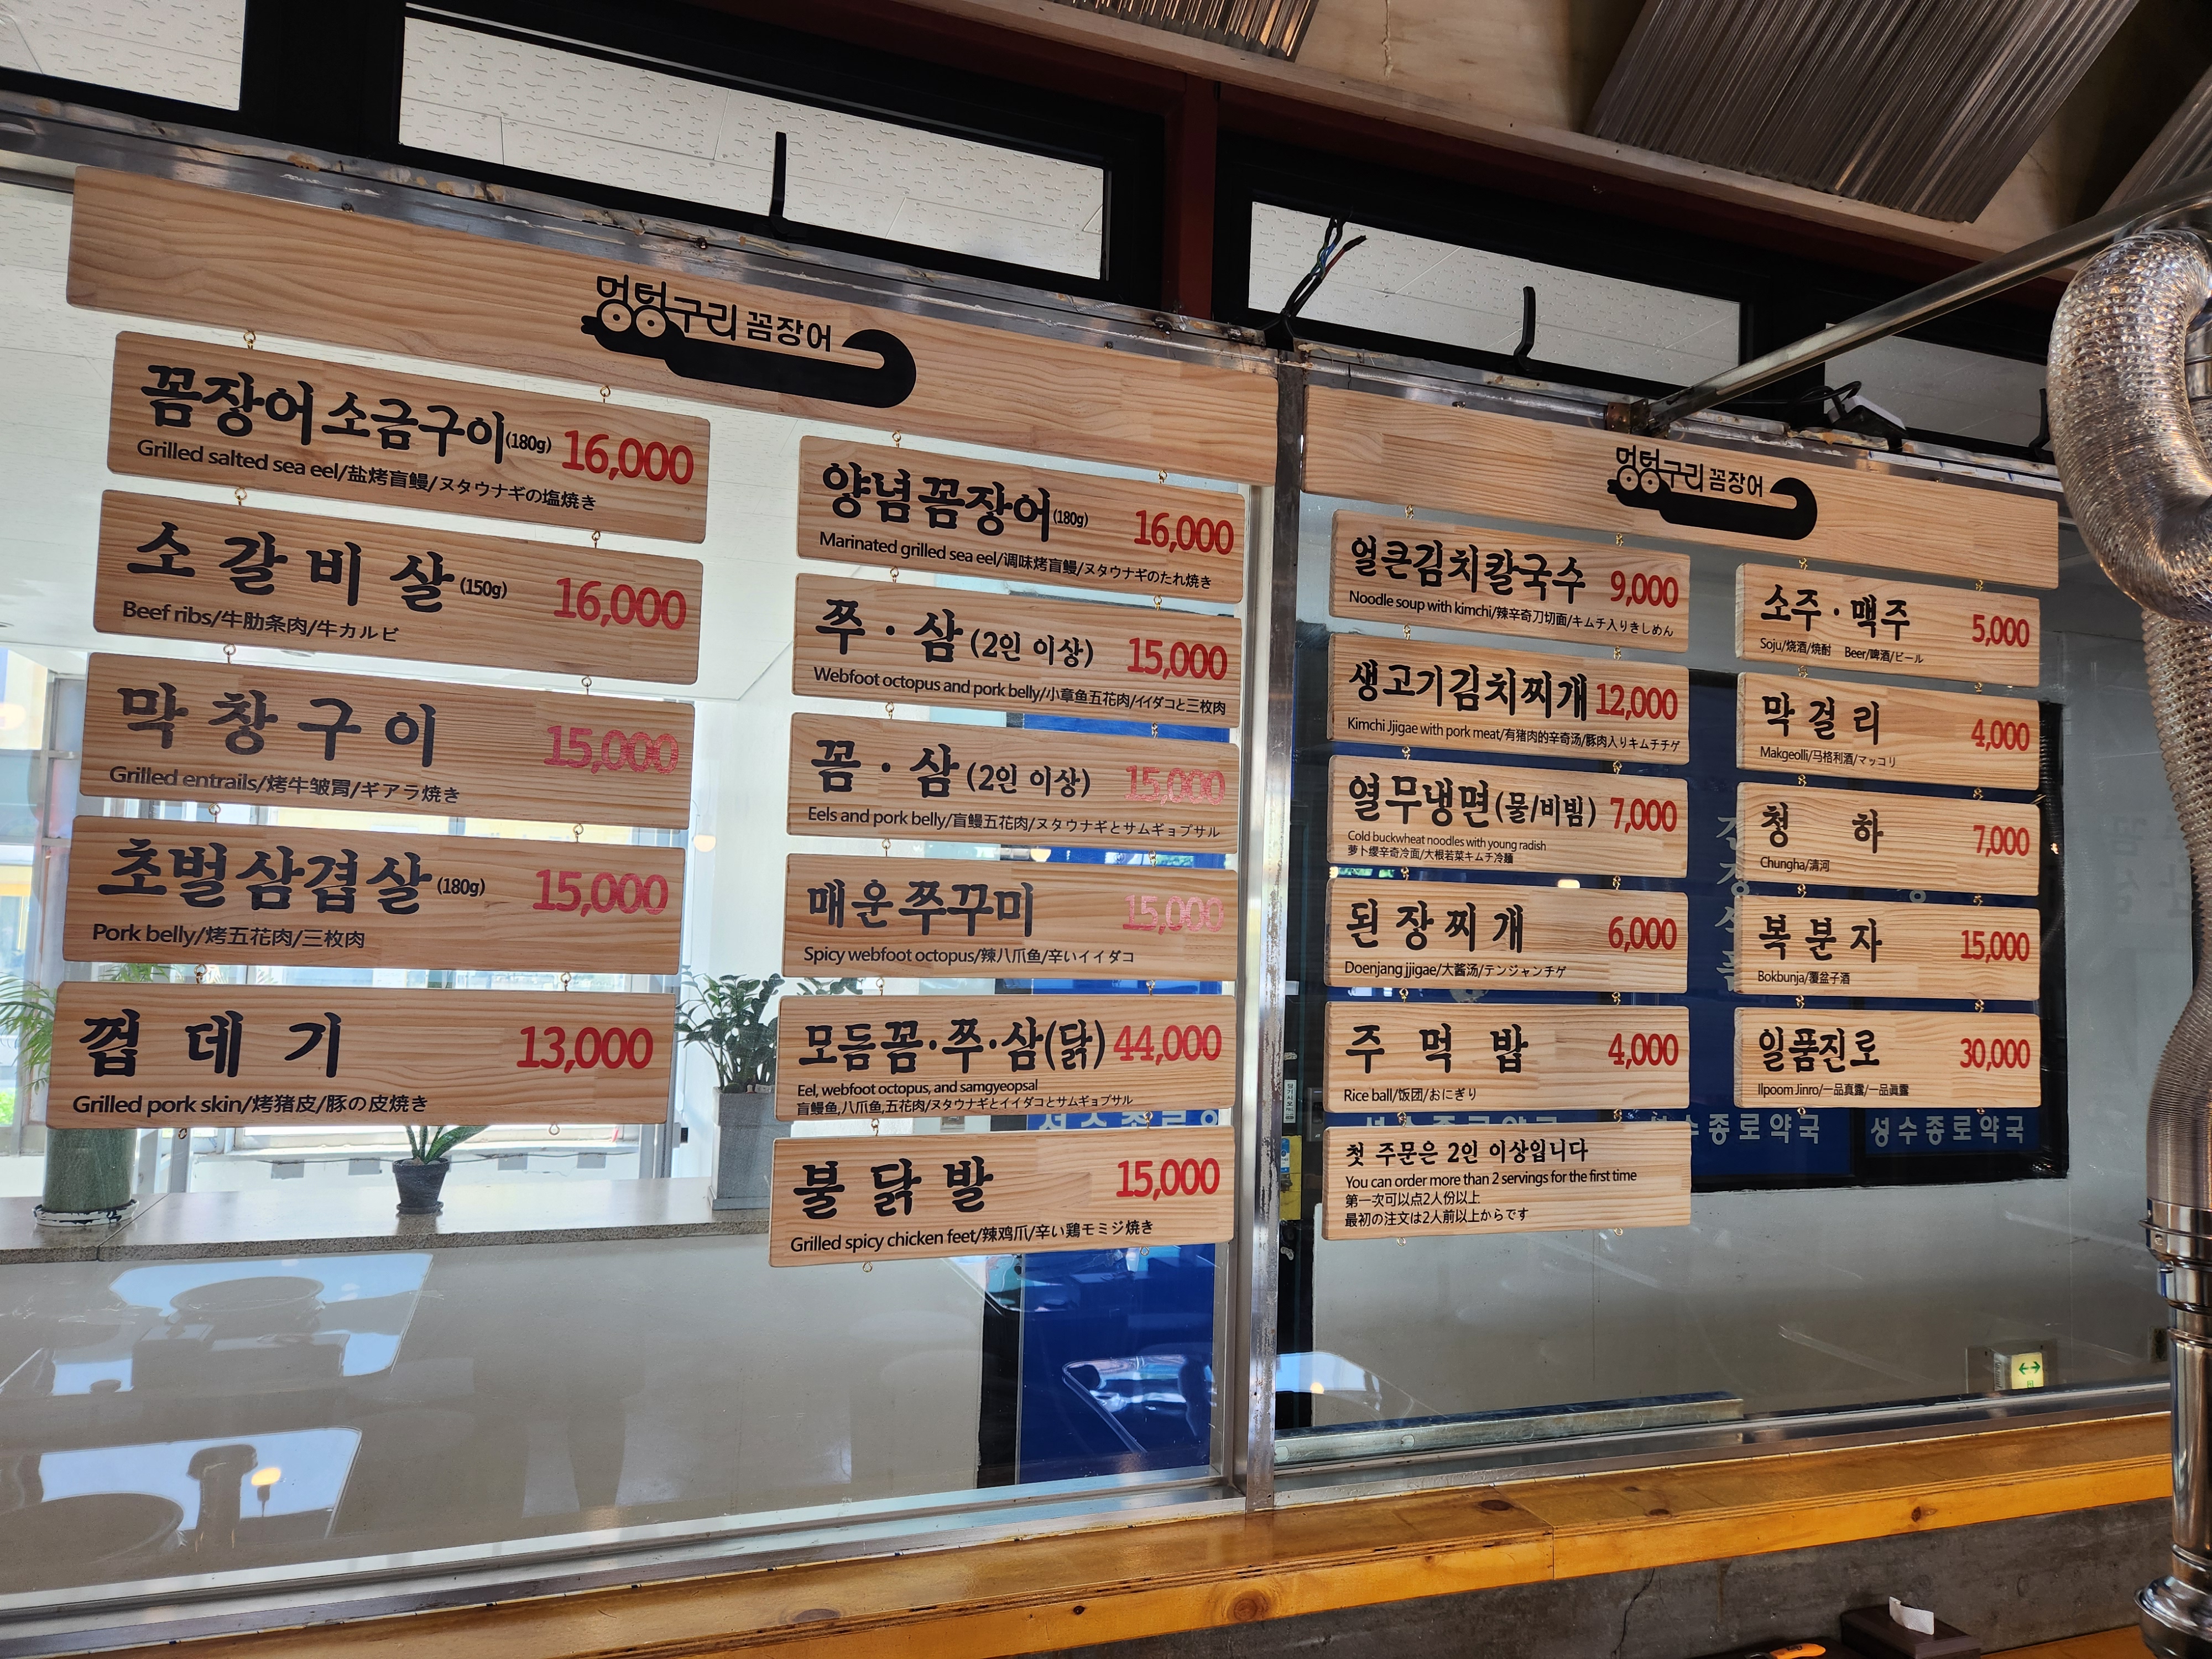 멍텅구리 꼼장어
꼼장어소금구이(180g) 16,000
Grilled salted sea eel/盐烤盲鳗/ヌタウナギの塩焼き
소갈비살(150g) 16,000
Beef ribs/牛肋条肉/牛カルビ
막창구이 15,000
Grilled entrails/烤牛皱胃/ギアラ焼き
초벌삼겹살(180g) 15,000
Pork belly/烤五花肉/三枚肉
껍데기 13,000
Grilled pork skin/烤猪皮/豚の皮焼き
양념꼼장어(180g) 16,000
Marinated grilled sea eel/调味烤盲鳗/ヌタウナギのたれ焼き
쭈·삼(2인 이상) 15,000
Webfoot octopus and pork belly/小章鱼五花肉/イイダコと三枚肉
꼼·삼(2인 이상) 15,000
Eels and pork belly/盲鳗五花肉/ヌタウナギとサムギョプサル
매운쭈꾸미 15,000
Spicy webfoot octopus/辣八爪鱼/辛いイイダコ
모듬꼼·쭈·삼(닭) 44,000
Eel, webfoot octopus, and samgyeopsal
盲鳗鱼,八爪鱼,五花肉/ヌタウナギとイイダコとサムギョプサル
불닭발 15,000
Grilled spicy chicken feet/辣鸡爪/辛い鶏モミジ焼き
멍텅구리 꼼장어
얼큰김치칼국수 9,000
Noodle soup with kimchi/辣辛奇刀切面/キムチ入りきしめん
생고기김치찌개 12,000
Kimchi Jjigae with pork meat/有猪肉的辛奇汤/豚肉入りキムチチゲ
열무냉면(물/비빔) 7,000
Cold buckwheat noodles with young radish
萝卜缨辛奇冷面/大根若菜キムチ冷麺
된장찌개 6,000
Doenjang jjigae/大酱汤/テンジャンチゲ
주먹밥 4,000
Rice ball/饭团/おにぎり
첫 주문은 2인 이상입니다
You can order more than 2 servings for the first time
第一次可以点2人份以上
最初の注文は2人前以上からです
소주·맥주 5,000
Soju/烧酒/焼酎 Beer/啤酒/ビール
막걸리 4,000
Makgeolli/马格利酒/マッコリ
청하 7,000
Chungha/清河
복분자 15,000
Bokbunja/覆盆子酒
일품진로 30,000
Ilpoom Jinro/一品真露/一品眞露
성수종로약국
성수종로약국